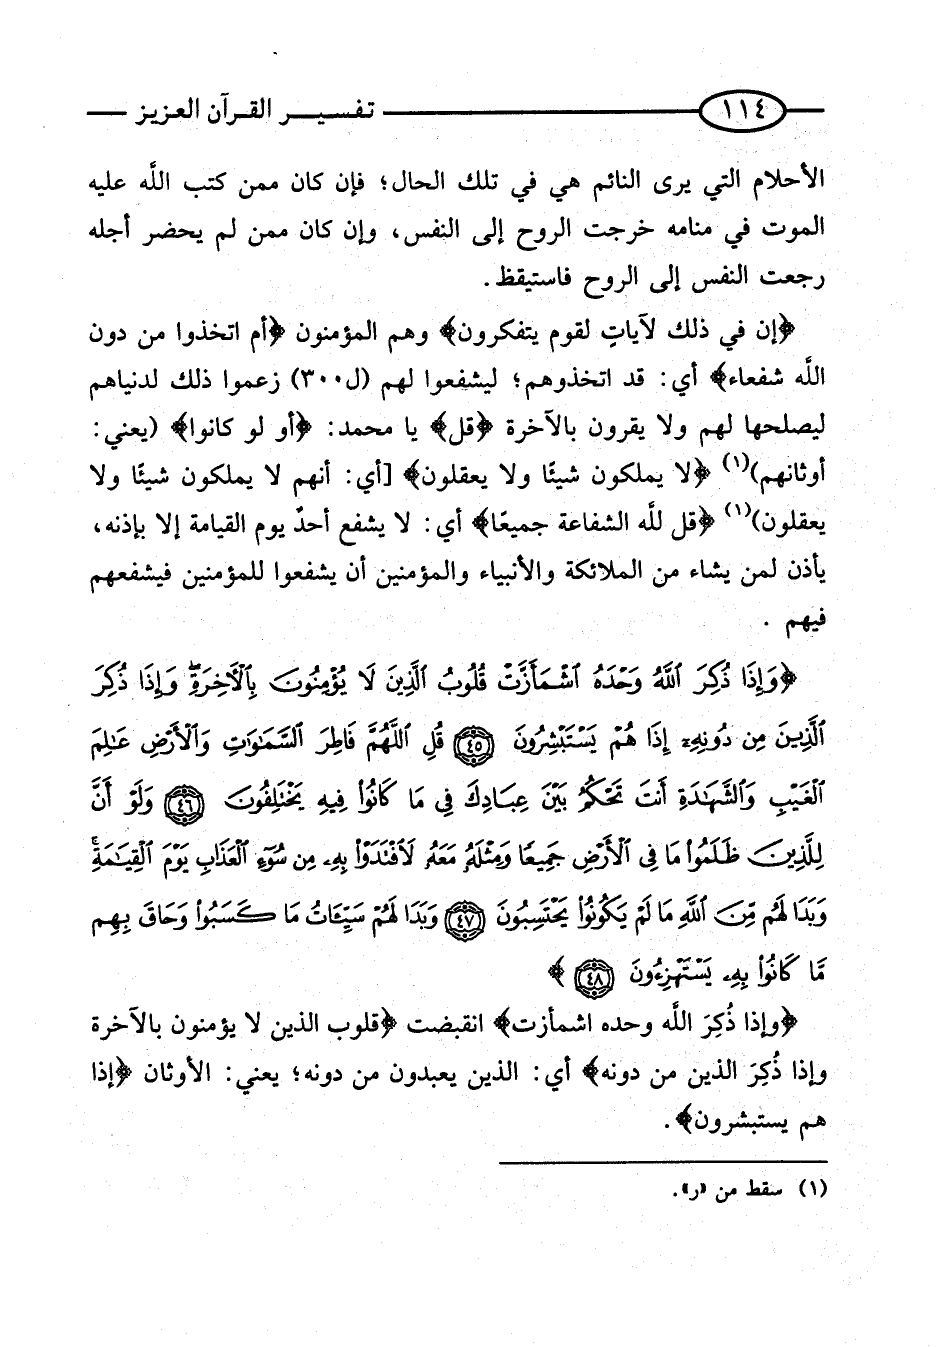 ١١٤ تفسير القرآن العزيز
الأحلام التي يرى النائم هي في تلك الحال؛ فإن كان ممن كتب الله عليه
الموت في منامه خرجت الروح إلى النفس، وإن كان ممن لم يحضر أجله
رجعت النفس إلى الروح فاستيقظ.
﴿إن في ذلك لآياتٍ لقوم يتفكرون﴾ وهم المؤمنون ﴿أم اتخذوا من دون
الله شفعاء﴾ أي: قد اتخذوهم؛ ليشفعوا لهم (ل٣٠٠) زعموا ذلك لدنياهم
ليصلحها لهم ولا يقرون بالآخرة ﴿قل﴾ يا محمد: ﴿أو لو كانوا﴾ (يعني:
أوثانهم)(١) ﴿لا يملكون شيئًا ولا يعقلون﴾ [أي: أنهم لا يملكون شيئًا ولا
يعقلون)(١) ﴿قل لله الشفاعة جميعًا﴾ أي: لا يشفع أحدٌ يوم القيامة إلا بإذنه،
يأذن لمن يشاء من الملائكة والأنبياء والمؤمنين أن يشفعوا للمؤمنين فيشفعهم
فيهم .
﴿وَإِذَا ذُكِرَ ٱللَّهُ وَحْدَهُ ٱشْمَأَزَّتْ قُلُوبُ ٱلَّذِينَ لَا يُؤْمِنُونَ بِٱلْآخِرَةِۖ وَإِذَا ذُكِرَ
ٱلَّذِينَ مِن دُونِهِۦٓ إِذَا هُمْ يَسْتَبْشِرُونَ ٤٥ قُلِ ٱللَّهُمَّ فَاطِرَ ٱلسَّمَٰوَٰتِ وَٱلْأَرْضِ عَٰلِمَ
ٱلْغَيْبِ وَٱلشَّهَٰدَةِ أَنتَ تَحْكُمُ بَيْنَ عِبَادِكَ فِى مَا كَانُوا۟ فِيهِ يَخْتَلِفُونَ ٤٦ وَلَوْ أَنَّ
لِلَّذِينَ ظَلَمُوا۟ مَا فِى ٱلْأَرْضِ جَمِيعًا وَمِثْلَهُۥ مَعَهُۥ لَٱفْتَدَوْا۟ بِهِۦ مِن سُوٓءِ ٱلْعَذَابِ يَوْمَ ٱلْقِيَٰمَةِۚ
وَبَدَا لَهُم مِّنَ ٱللَّهِ مَا لَمْ يَكُونُوا۟ يَحْتَسِبُونَ ٤٧ وَبَدَا لَهُمْ سَيِّـَٔاتُ مَا كَسَبُوا۟ وَحَاقَ بِهِم
مَّا كَانُوا۟ بِهِۦ يَسْتَهْزِءُونَ ٤٨ ﴾
﴿وإذا ذُكِرَ الله وحده اشمأزت﴾ انقبضت ﴿قلوب الذين لا يؤمنون بالآخرة
وإذا ذُكِرَ الذين من دونه﴾ أي: الذين يعبدون من دونه؛ يعني: الأوثان ﴿إذا
هم يستبشرون﴾.
(١) سقط من «ر».